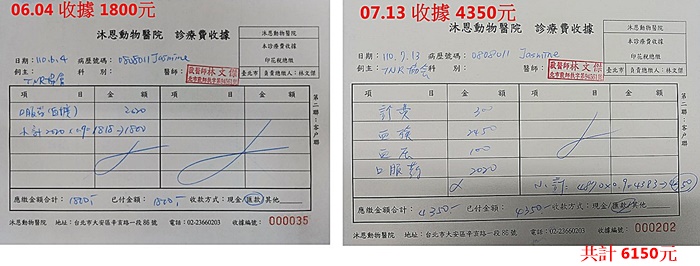 06.04 收據 1800元
沐恩動物醫院 診療費收據
沐恩動物醫院
本診療費收據
印花稅總繳
臺北市 負責總繳人:林文傑
日期:110.6.4 病歷號碼:0808011 Jasmine
飼主:TNR協會 科 別: 醫師:
獸醫師林文傑
項 目 金 額 項 目 金 額
口服藥 2020
小計2020×0.9=1818→1800
第二聯:客戶聯
應繳金額合計:1800- 已付金額:1800- 收款方式:現金/匯款/其他
沐恩動物醫院 地址:台北市大安區辛亥路一段86號 電話:02-23660203 收據編號:000035
07.13 收據 4350元
沐恩動物醫院 診療費收據
沐恩動物醫院
本診療費收據
印花稅總繳
臺北市 負責總繳人:林文傑
日期:110.7.13 病歷號碼:0808011 Jasmine
飼主:TNR協會 科 別: 醫師:
獸醫師林文傑
項 目 金 額 項 目 金 額
診費 300
血檢 2450
100
口服藥 2020
小計:4870×0.9=4383→4350
第二聯:客戶聯
應繳金額合計:4350- 已付金額:4350- 收款方式:現金/匯款/其他
沐恩動物醫院 地址:台北市大安區辛亥路一段86號 電話:02-23660203 收據編號:000202
共計 6150元